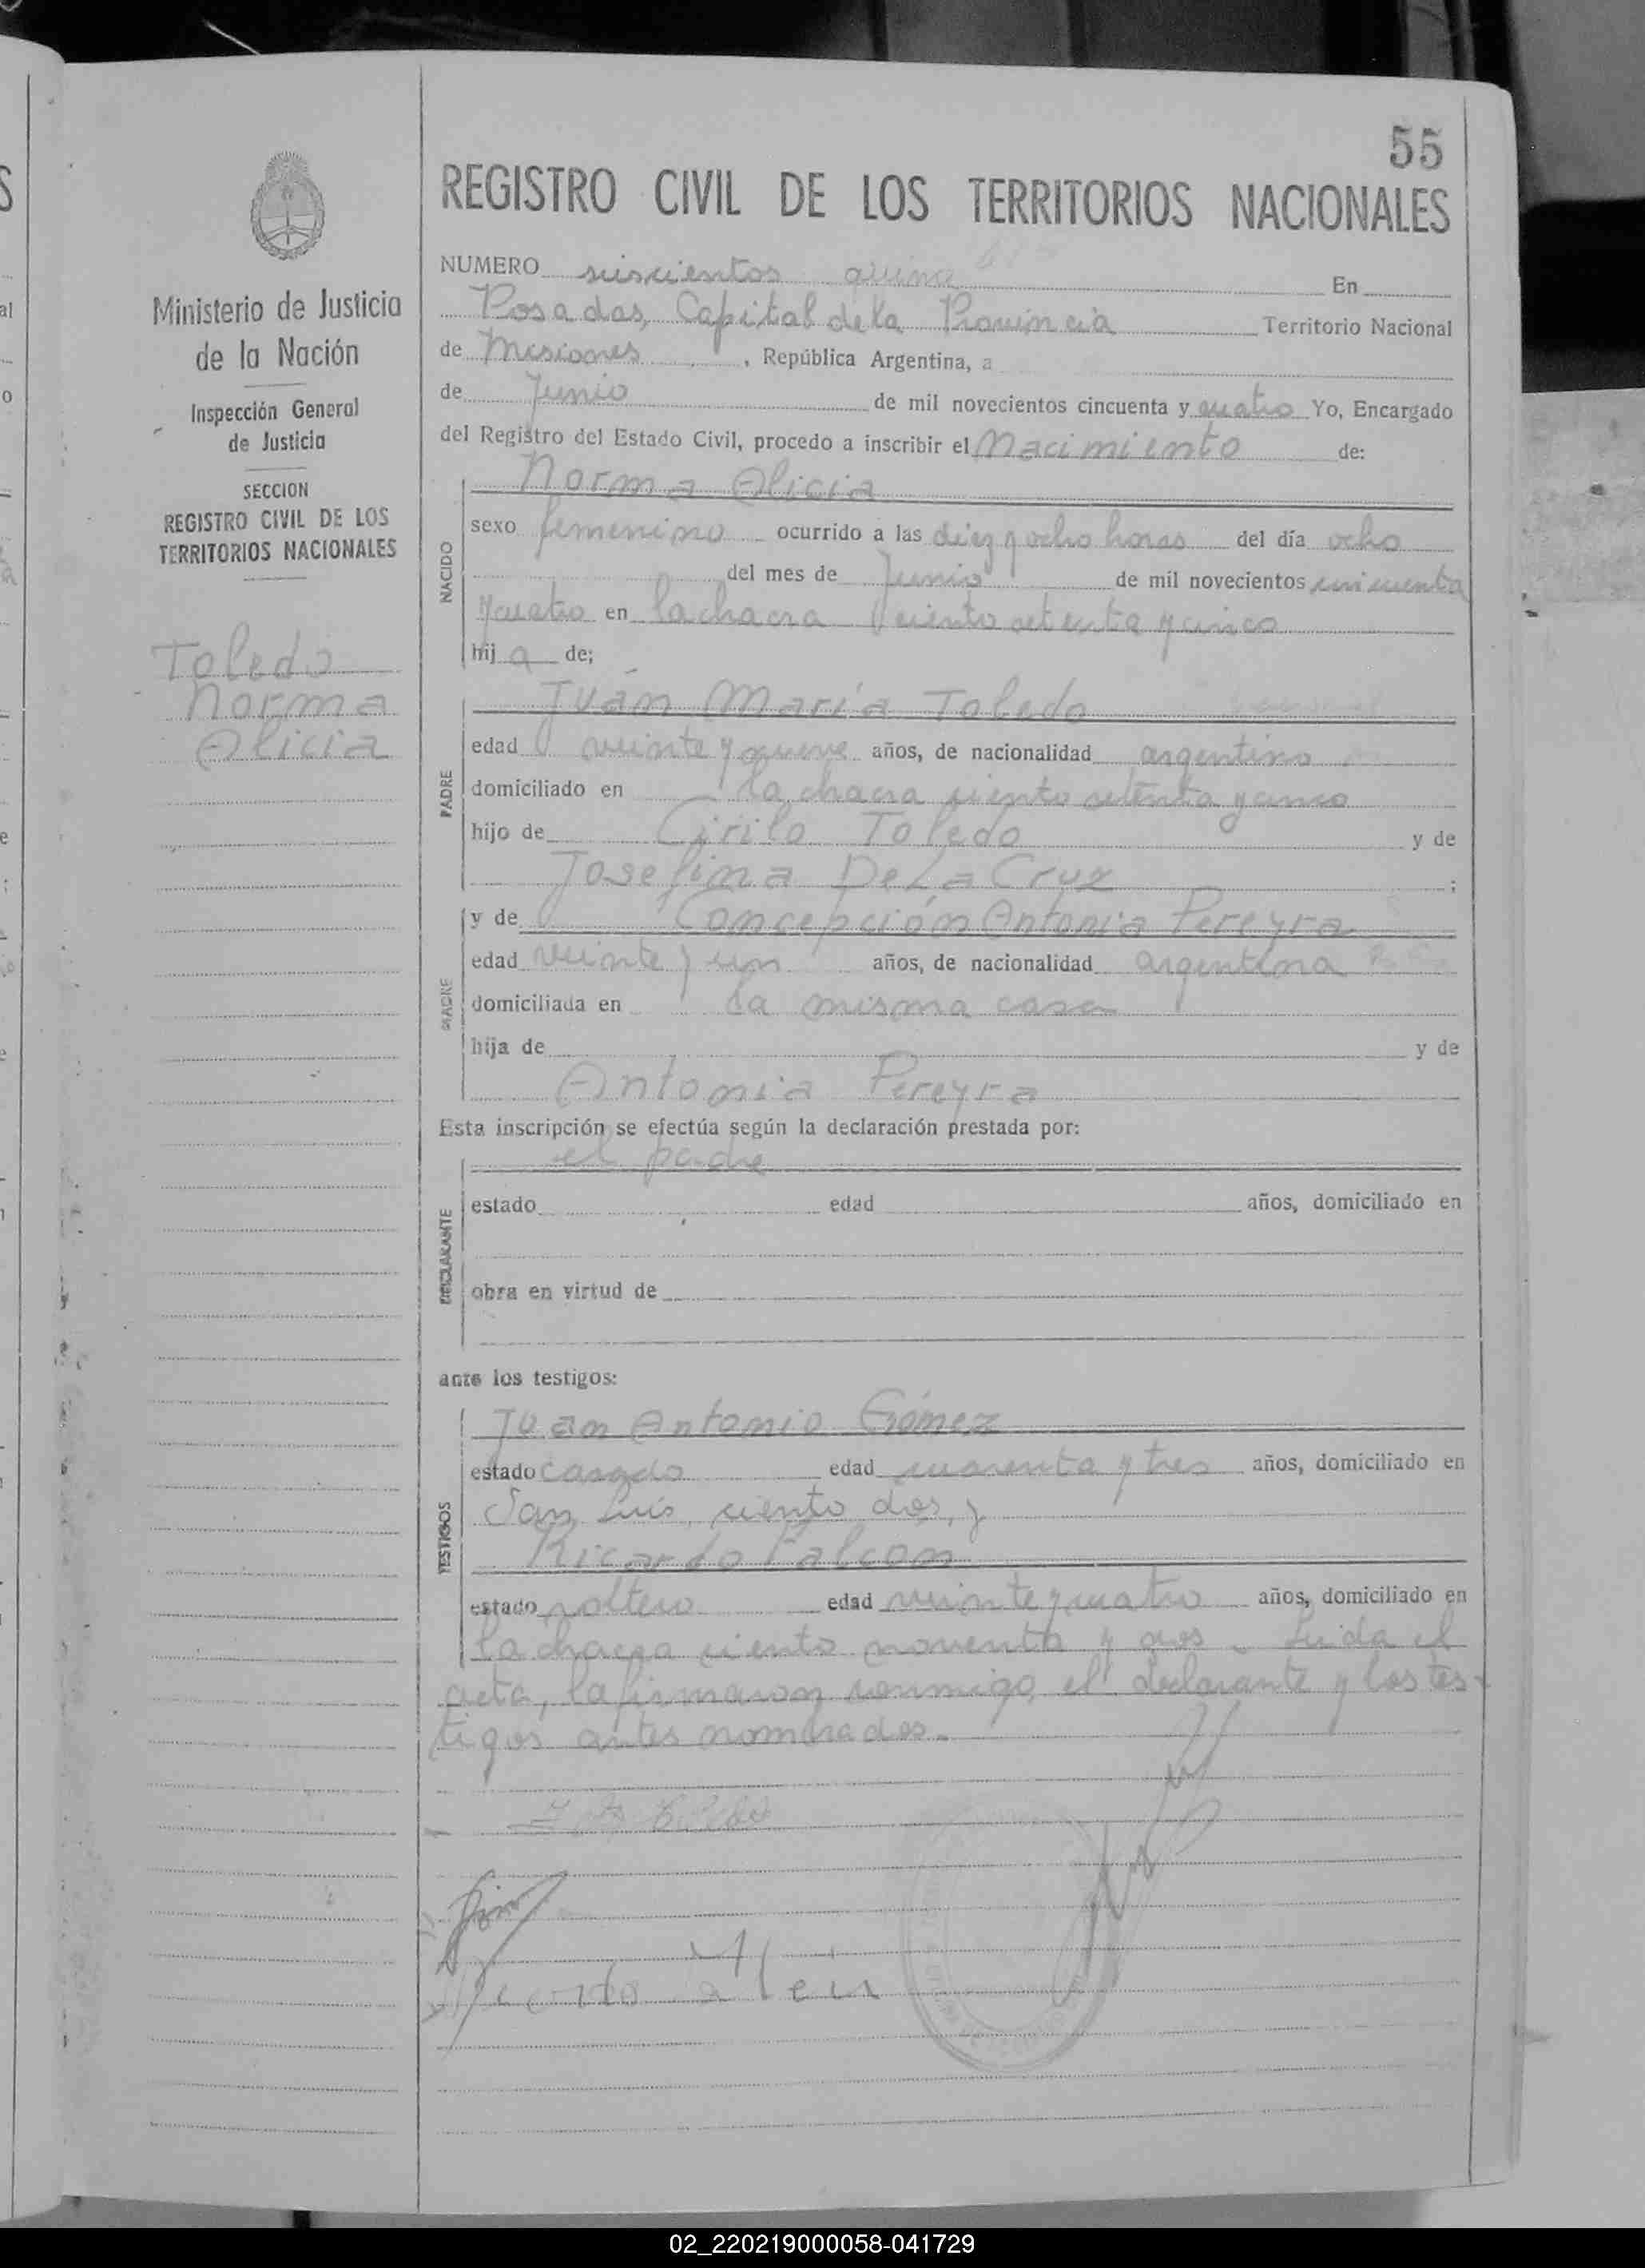 55
REGISTRO CIVIL DE LOS TERRITORIOS NACIONALES
Ministerio de Justicia
de la Nación
Inspección General
de Justicia
SECCION
REGISTRO CIVIL DE LOS
TERRITORIOS NACIONALES
Toledo
Norma
Alicia
NUMERO seiscientos quince En
Posadas, Capital de la Provincia Territorio Nacional
de Misiones, República Argentina, a
de Junio de mil novecientos cincuenta y cuatro Yo, Encargado
del Registro del Estado Civil, procedo a inscribir el Nacimiento de:
Norma Alicia
NACIDO
sexo femenino ocurrido a las diez y ocho horas del día ocho
del mes de Junio de mil novecientos cincuenta
y cuatro en la chacra ciento setenta y cinco
hij a de;
Juan María Toledo
PADRE
edad veinte y nueve años, de nacionalidad argentino
domiciliado en la chacra ciento setenta y cinco
hijo de Cirilo Toledo y de
Josefina De La Cruz ;
y de Concepción Antonia Pereyra
MADRE
edad veinte y un años, de nacionalidad argentina
domiciliada en la misma casa
hija de y de
Antonia Pereyra
Esta inscripción se efectúa según la declaración prestada por:
el padre
DECLARANTE
estado edad años, domiciliado en
obra en virtud de
ante los testigos:
Juan Antonio Gómez
TESTIGOS
estado casado edad cuarenta y tres años, domiciliado en
San Luis, ciento dos, y
Ricardo Falcon
estado soltero edad veinte y cuatro años, domiciliado en
la chacra ciento noventa y dos. Leida el
acta, la firmaron conmigo, el declarante y los tes-
tigos antes nombrados.-
02_220219000058-041729